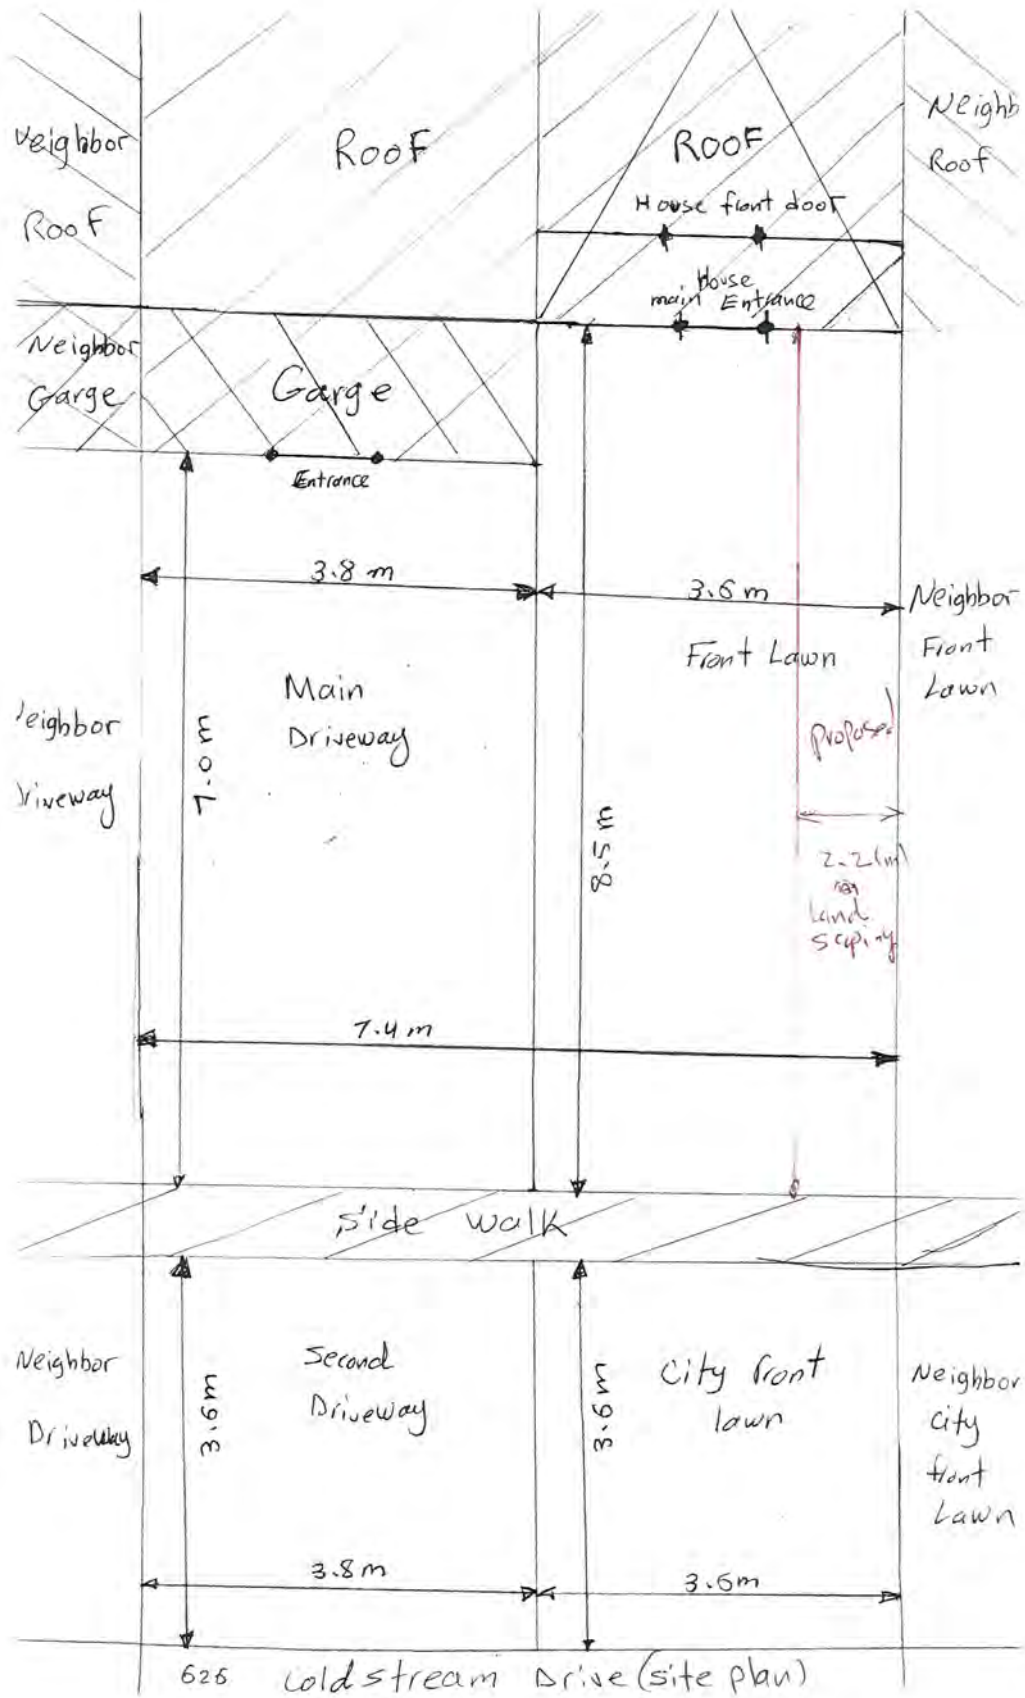 Neighbor
Roof
Roof
Roof
Neighb
Roof
House front door
House
main Entrance
Neighbor
Garge
Garge
Entrance
3.8 m
3.6 m
Neighbor
Front
Lawn
Front Lawn
Main
Driveway
7.0 m
eighbor
riveway
proposed
8.5 m
2.2(m)
Land
scaping
7.4 m
Side walk
Neighbor
Driveway
Second
Driveway
3.6m
3.6m
City front
lawn
Neighbor
City
front
Lawn
3.8m
3.6m
626 Coldstream Drive (site plan)